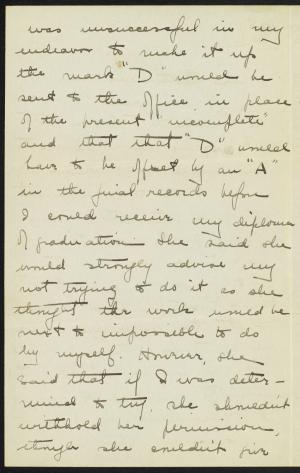 was unsuccessful in my
endeavor to make it up
the mark "D" would be
sent to the office in place
of the present "incomplete"
and that that "D" would
have to be offset by an "A"
in the final records before
I could receive my diploma
of graduation. She said she
would strongly advise my
not trying to do it as she
thought the work would be
next to impossible to do
by myself. However, she
said that if I was deter-
mined to try, she shouldn't
withhold her permission,
though she couldn't give